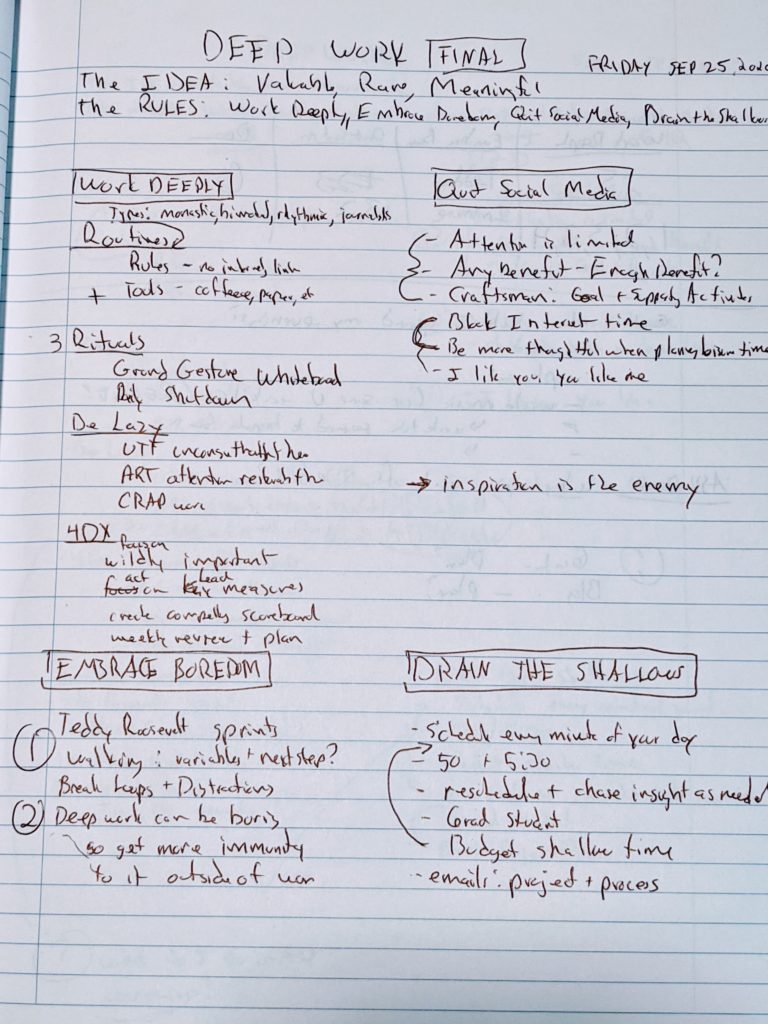 DEEP WORK FINAL
FRIDAY SEP 25, 202
The IDEA: Valuable, Rare, Meaningful
the RULES: Work Deeply, Embrace Boredom, Quit Social Media, Drain the Shallow
Work DEEPLY
Types: monastic, bimodal, rhythmic, journalists
Routines
Rules - no internet,
+ Tools - coffee, paper, et
3 Rituals
Grand Gesture Whiteboard
Daily Shutdown
Be Lazy
UTT
ART attention
CRAP work
4DX
Focus on
wildly important
act Lead
focus on measures
create scoreboard
weekly review + plan
Quit Social Media
- Attention is limited
- Any benefit - Enough Benefit?
- Craftsman: Goal + Activites
Block Internet time
- Be more thoughtful when time
- I like you, you like me
→ inspiration is the enemy
EMBRACE BOREDOM
1 Teddy Roosevelt sprints
walking: variables + next step?
Break Loops + Distractions
2 Deep work can be boring
so get more immunity
to it outside of work
DRAIN THE SHALLOWS
- Schedule every minute of your day
- 50 + 5:30
- reschedule + chase insight as needed
- Grad student
Budget shallow time
- emails: project + process